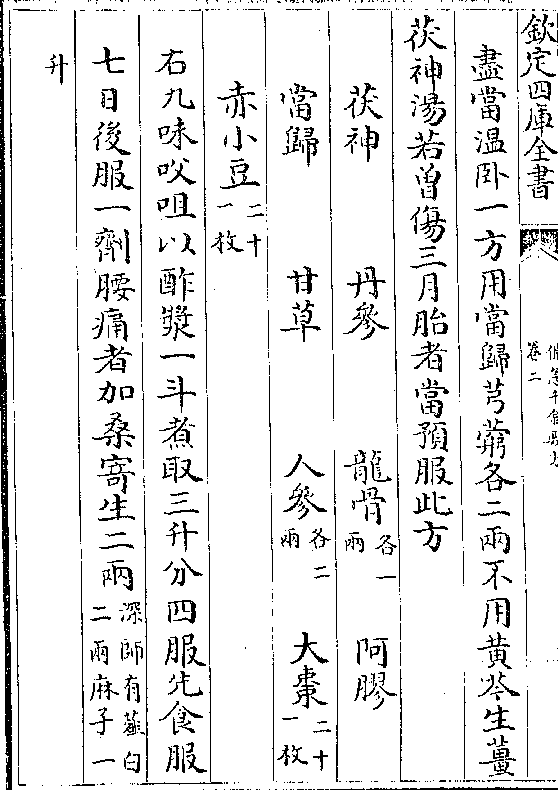 欽定四庫全書
卷二
盡當温卧一方用當歸芎藭各二兩不用黄芩生薑
茯神湯若曾傷三月胎者當預服此方
茯神 丹參 龍骨各一兩 阿膠
當歸 甘草 人參各二兩 大棗二十一枚
赤小豆二十一枚
右九味㕮咀以酢漿一斗煮取三升分四服先食服
七日後服一劑腰痛者加桑寄生二兩深師有薤白二兩麻子一
升